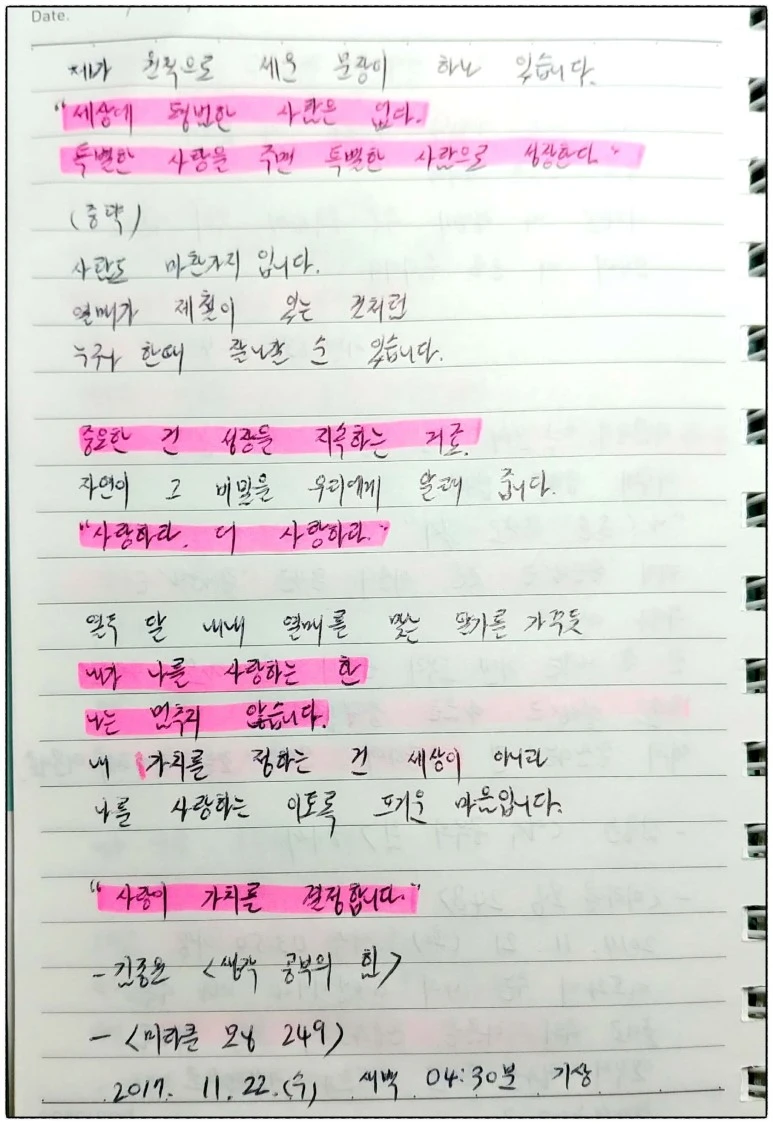 Date.
제가 원칙으로 세운 문장이 하나 있습니다.
"세상에 평범한 사람은 없다.
특별한 사랑을 주면 특별한 사람으로 성장한다."
(중략)
사람도 마찬가지 입니다.
열매가 제철이 있는 것처럼
누구나 한때 잘나갈 순 있습니다.
중요한 건 성장을 지속하는 거죠.
자연이 그 비밀을 우리에게 알려 줍니다.
"사랑하라. 더 사랑하라."
열두 달 내내 열매를 맺는 딸기를 가꾸듯
내가 나를 사랑하는 한
나는 멈추지 않습니다.
내 가치를 정하는 건 세상이 아니라
나를 사랑하는 이토록 뜨거운 마음입니다.
"사랑이 가치를 결정합니다."
- 김종원 <생각 공부의 힘>
- <미라클 모닝 249>
2017. 11. 22.(수) 새벽 04:30분 기상